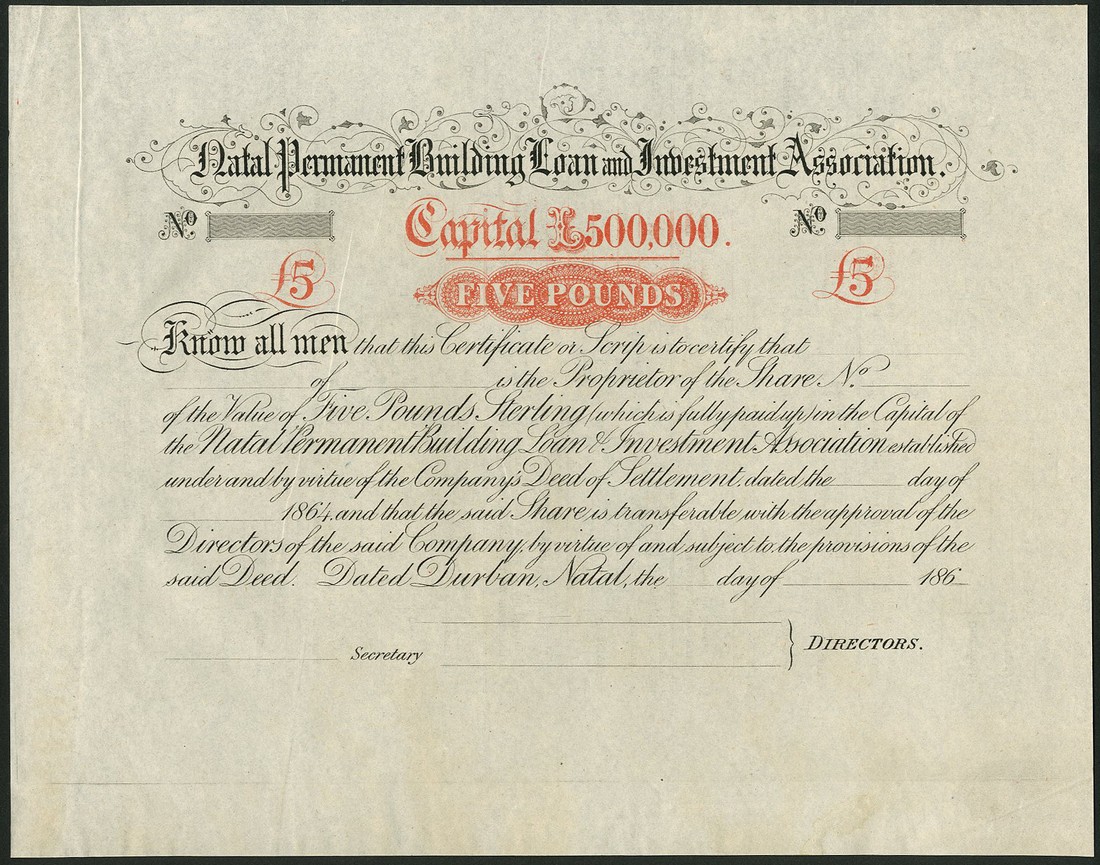 Natal Permanent Building Loan and Investment Association.
No. No.
Capital £500,000.
£5 £5
FIVE POUNDS
Know all men that this Certificate or Scrip is to certify that
of is the Proprietor of the Share No.
of the Value of Five Pounds Sterling (which is fully paid up) in the Capital of
the Natal Permanent Building Loan & Investment Association established
under and by virtue of the Company's Deed of Settlement, dated the day of
1864, and that the said Share is transferable with the approval of the
Directors of the said Company, by virtue of and subject to the provisions of the
said Deed. Dated Durban, Natal, the day of 186
Secretary DIRECTORS.